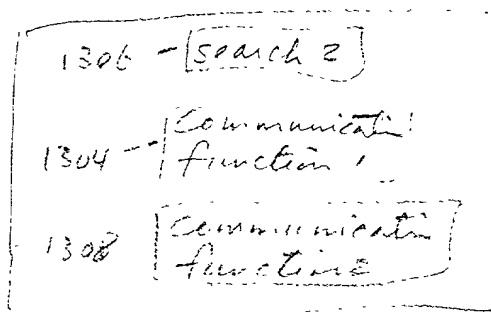 1306 - search 2
Communication
1304 -- function 1
1308 Communication
function 2